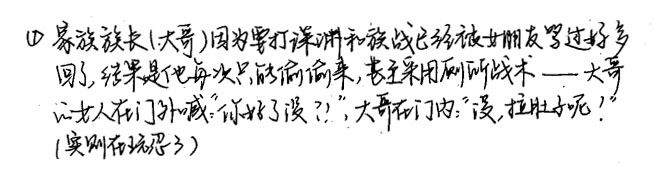 ① 家族族长(大哥)因为要打深渊和族战已经被女朋友骂过好多
回了,结果是他每次只能偷偷来,甚至采用厕所战术——大哥
的女人在门外喊:"你好了没?!",大哥在门内:"没,拉肚子呢!"
(实则在玩忍3)